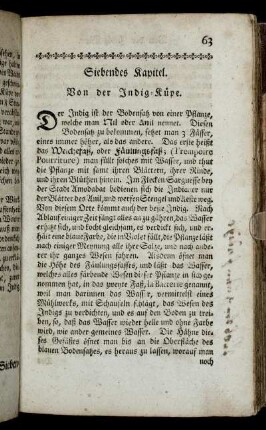 63
Siebendes Kapitel.
Von der Indig-Küpe.
Der Indig ist der Bodensatz von einer Pflanze,
welche man Nil oder Anil nennet. Diesen
Bodensatz zu bekommen, setzet man 3 Fässer,
eines immer höher, als das andere. Das erste heißt
das Weichfaß, oder Fäulungsfaß; (Trempoire
Pourriture) man füllt solches mit Wasser, und thut
die Pflanze mit samt ihren Blättern, ihrer Rinde,
und ihren Blüthen hinein. Im Flecken Sarquesse bey
der Stadt Amadabat bedienen sich die Indianer nur
der Blätter des Anil, und werfen Stengel und Aeste weg.
Von diesem Orte kömmt auch der beste Indig. Nach
Ablauf einiger Zeit fängt alles an zu gähren, das Wasser
erhitzt sich, und kocht gleichsam, es verdickt sich, und er-
hält eine blaue Farbe, die ins Violet fällt, die Pflanze läßt
nach einiger Meynung alle ihre Salze, und nach andern
ihr ganzes Wesen fahren. Alsdenn öfnet man
die Hähne des Fäulungsfasses, und läßt das Wasser,
welches alles färbende Wesen der Pflanze in sich ge-
nommen hat, in das zweyte Faß, la Batterie genannt,
weil man darinnen das Wasser, vermittelst eines
Mühlwerks, mit Schaufeln schlägt, das Wesen des
Indigs zu verdichten, und es auf den Boden zu trei-
ben, so, daß das Wasser wieder helle und ohne Farbe
wird, wie ander gemeines Wasser. Die Hähne die-
ses Gefäses öfnet man bis an die Oberfläche des
blauen Bodensatzes, es heraus zu lassen, worauf man
noch